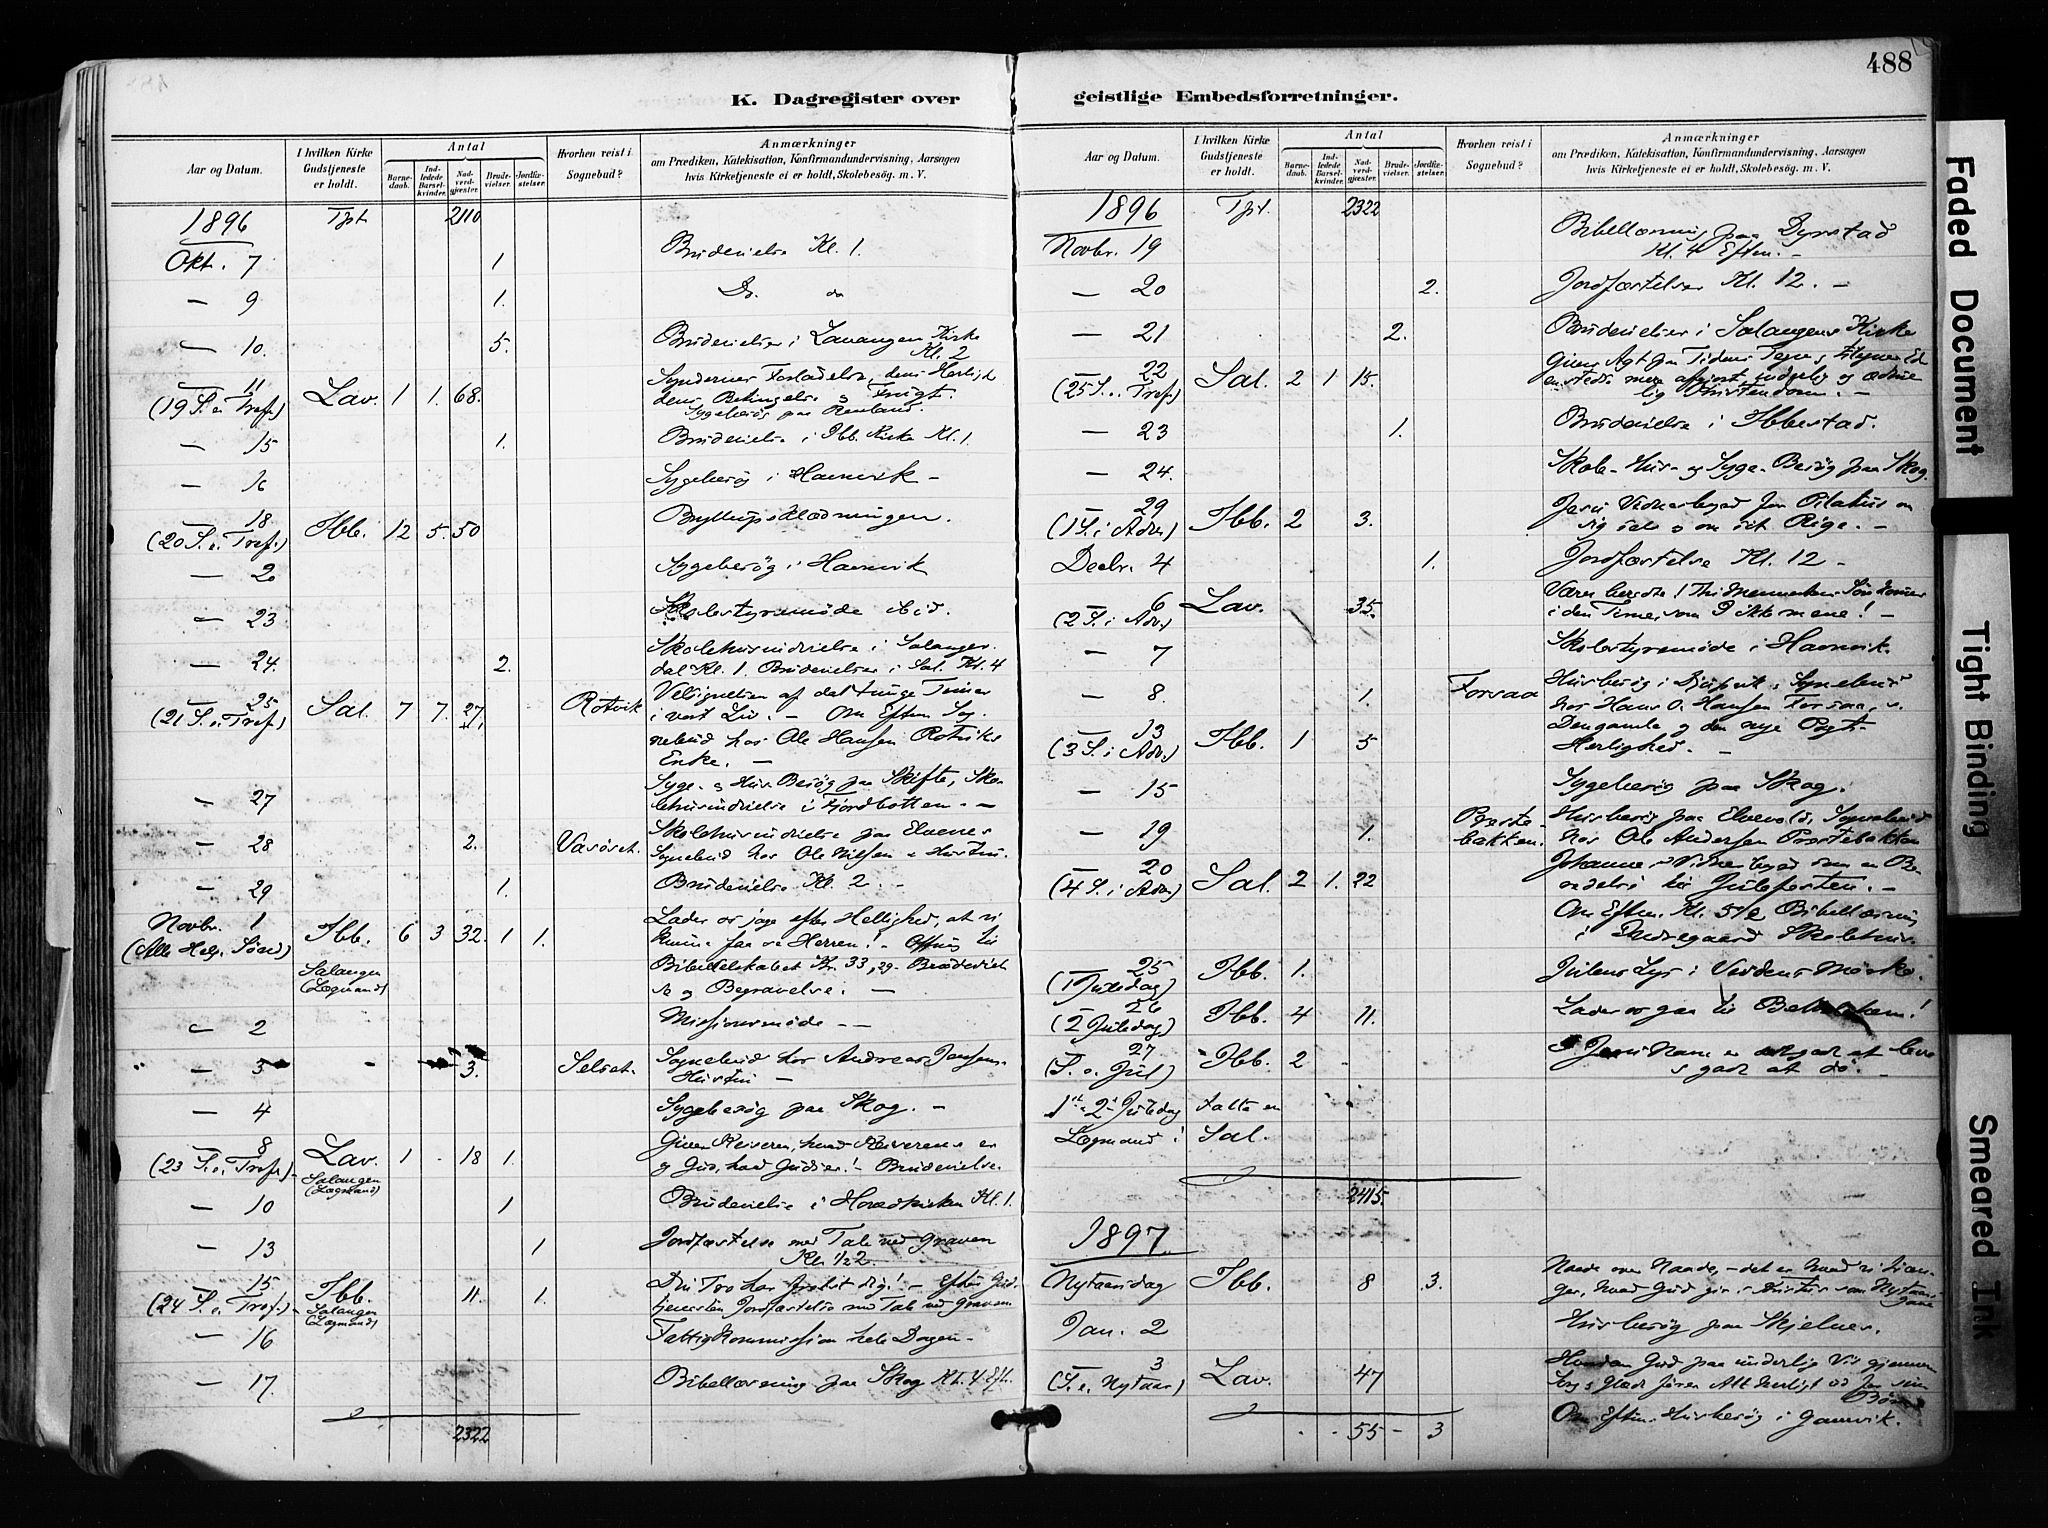 488
K. Dagregister over geistlige Embedsforretninger.
Aar og Datum.
I hvilken Kirke Gudstjeneste er holdt.
Antal
Barnedaab.
Indledede Barselkvinder.
Nadverdgjester.
Brudevielser.
Jordfæstelser.
Hvorhen reist i Sognebud?
Anmærkninger
om Prædiken, Katekisation, Konfirmandundervisning, Aarsagen
hvis Kirketjeneste ei er holdt, Skolebesög. m. V.
1896 Tpt 2110
Okt. 7 1 Brudevielse Kl. 1.
— 9 1. Do. do
— 10. 5. Brudevielser i Lavangen Kirke
Kl. 2
— 11 Syndernes Forladelse, dens Herlighed
(19 S. e. Tref.) Lav. 1 1. 68. dens Betingelse og Frugt.
Sygebesøg paa
— 15 1. Brudevielse i Ibb. Kirke Kl. 1.
— 16 Sygebesøg i Havnvik –
— 18 Bryllupsklædningen.
(20 S. e. Tref.) Ibb. 12 5. 50
— 20 Sygebesøg i Havnvik
— 23 Skolestyremøde ibid.
— 24. 2. Skolehusindvielse i Salangsdal Kl. 1. Brudevielser i Sal. Kl. 4
— 25 Velsignelsen af de tunge Timer
(21 S. e. Tref.) Sal. 7 7. 27. Rotvik i vort Liv. – Om Eftm. Sognebud hos Ole Hansen Rotviks
Enke. –
— 27 Syge- og Hus-Besøg paa Skifte, Skolehusindvielse i Fjordbotten. –
— 28 2. Vasöset. Skolehusindvielse paa Elvenes
Sognebud hos Ole Nilsen Hustru.
— 29 1. Brudevielse Kl. 2. –
Novbr. 1 Lader os jage efter Hellighed, at vi
(Alle Helg. Sönd.) Ibb. 6 3 32. 1 1. kunne faa se Herren! – Offring til
Salangen
(Lægmand) Bibelselskabet Kr. 33,29. Brudevielse og Begravelse. –
— 2 Missionsmøde –
— 3 3. Selset. Sognebud hos Andreas Jensens
Hustru –
— 4 Sygebesøg paa Skog. –
— 8 Giver Keiseren, hvad Keiserens er
(23 S. e. Tref.) Lav. 1 - 18 1. og Gud, hvad Guds er! – Brudevielse.
Salangen
(Lægmand)
— 10 1 Brudevielse i Hovedkirken Kl. 1.
— 13 1 Jordfæstelse med Tale ved Graven
Kl. 1/2 2
— 15 Din Tro har frelst dig! – Efter Gudstjenesten Jordfæstelse med Tale ved Graven
(24 S. e. Tref.) Ibb. 11. 1.
Salangen
(Lægmand)
— 16 Fattigkommission hele Dagen –
— 17. Bibellæsning paa Skog Kl. 4 Eft.
2322
Aar og Datum.
I hvilken Kirke Gudstjeneste er holdt.
Antal
Barnedaab.
Indledede Barselkvinder.
Nadverdgjester.
Brudevielser.
Jordfæstelser.
Hvorhen reist i Sognebud?
Anmærkninger
om Prædiken, Katekisation, Konfirmandundervisning, Aarsagen
hvis Kirketjeneste ei er holdt, Skolebesög. m. V.
1896 Tpt. 2322
Novbr. 19 Bibellæsning paa Dyrstad
Kl. 4 Eftm. –
— 20 2. Jordfæstelser Kl. 12. –
— 21 2. Brudevielser i Salangens Kirke
— 22 Giver Agt paa Tidens Tegn
(25 S. e. Tref.) Sal. 2 1 15. Kristendom. –
— 23 1. Brudevielse i Ibbestad.
— 24. Skole- Hus- og Syge-Besøg paa Skog.
— 29 Jesu Vidnesbyrd for Pilatus om
(1 S. i Adv.) Ibb. 2 3. sig selv og om sit Rige. –
Decbr. 4 1. Jordfæstelse Kl. 12 –
— 6 Værer beredte! Thi Menneskens Søn kommer
(2 S. i Adv.) Lav. 35. i den Time, som I ikke mene! –
— 7 Skolestyremøde i Havnvik.
— 8. 1. Forsaa Husbesøg i Djupvik, Sognebud
hos Hans O. Hansen Forsaa,
— 13 Den gamle og den nye Pagts
(3 S. i Adv.) Ibb. 1 5 Herlighed. –
— 15 Sygebesøg paa Skog.
— 19 1. Præstebakken. Husbesøg paa Elvevold, Sognebud
hos Ole Andersen Præstebakken
— 20 Johannes's Vidnesbyrd som en
(4 S. i Adv.) Sal. 2 1. 22 Julefesten. –
Om Eftm. Kl. 5 1/2 Bibellæsning
i Skolehus.
— 25 Ibb. 1. Julens Lys i Verdens Mørke.
(1 Juledag)
— 26 Ibb. 4 11. Lader os gaa til Bethlehem!
(2 Juledag)
— 27 Ibb. 2 I Jesu Navn er det godt at leve
(S. e. Jul) og godt at dø. –
1ste & 2den Juledag talte en
Lægmand i Sal.
2415.
1897
Nytaarsdag Ibb. 8 3. Naade over Naade, – det er hvad vi trænger, hvad Gud gir i Kristus som Nytaarsgave
Jan. 2 Husbesøg paa Skjelnes.
— 3 Hvordan Gud paa underlig Vis gjennem
(S. e. Nytaar) Lav. 47 Sorg og Glæde fører Alt herligt ud for sine
Børn
Om Eftm. Husbesøg i Gamvik.
. . 55 - 3
Faded Document
Tight Binding
Smeared Ink